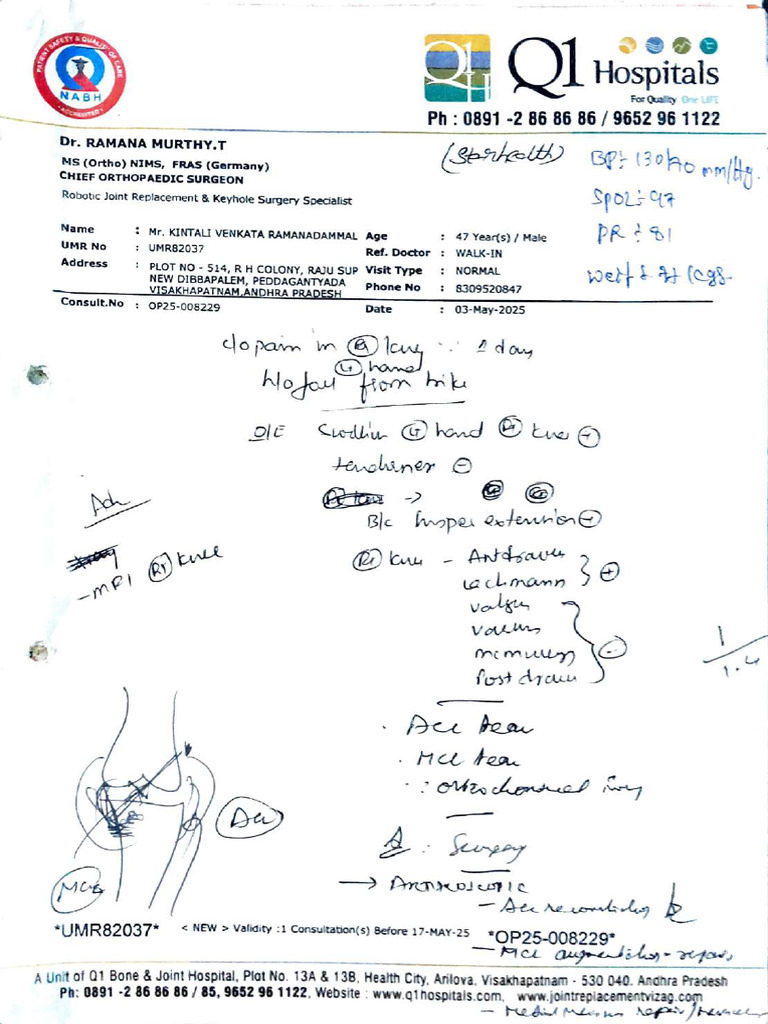 PATIENT SAFETY & QUALITY OF CARE
NABH
ACCREDITED
Q1
Q1 Hospitals
For Quality One LIFE
Ph : 0891 -2 86 86 86 / 9652 96 1122
Dr. RAMANA MURTHY.T
MS (Ortho) NIMS, FRAS (Germany)
CHIEF ORTHOPAEDIC SURGEON
Robotic Joint Replacement & Keyhole Surgery Specialist
(Starhealth)
BP:- 130/70 mm/Hg.
SPO2:- 97
PR :- 81
Name : Mr. KINTALI VENKATA RAMANADAMMAL
Age : 47 Year(s) / Male
UMR No : UMR82037
Ref. Doctor : WALK-IN
Address : PLOT NO - 514, R H COLONY, RAJU SUP
NEW DIBBAPALEM, PEDDAGANTYADA
VISAKHAPATNAM,ANDHRA PRADESH
Visit Type : NORMAL
Phone No : 8309520847
Consult.No : OP25-008229
Date : 03-May-2025
c/o pain in Rt knee
Lt hand
day
H/o fall from bike
O/E Swelling Lt hand Rt knee +
tenderness
B/c hyper extension
Adv
- MRI Rt knee
Rt knee - Ant drawer
Lachmann +
valgus
varus
mcmurray
Post drawer
-
1
1.4
. ACL tear
. MCL tear
: osteochondral injury
ACL
MCL
: Surgery
→ Arthroscopic
- ACL reconstruction
*UMR82037* < NEW > Validity :1 Consultation(s) Before 17-MAY-25 *OP25-008229*
- MCL augmentation - repair
A Unit of Q1 Bone & Joint Hospital, Plot No. 13A & 13B, Health City, Arilova, Visakhapatnam - 530 040. Andhra Pradesh
Ph: 0891 -2 86 86 86 / 85, 9652 96 1122, Website : www.q1hospitals.com, www.jointreplacementvizag.com
- Medial Meniscus repair/